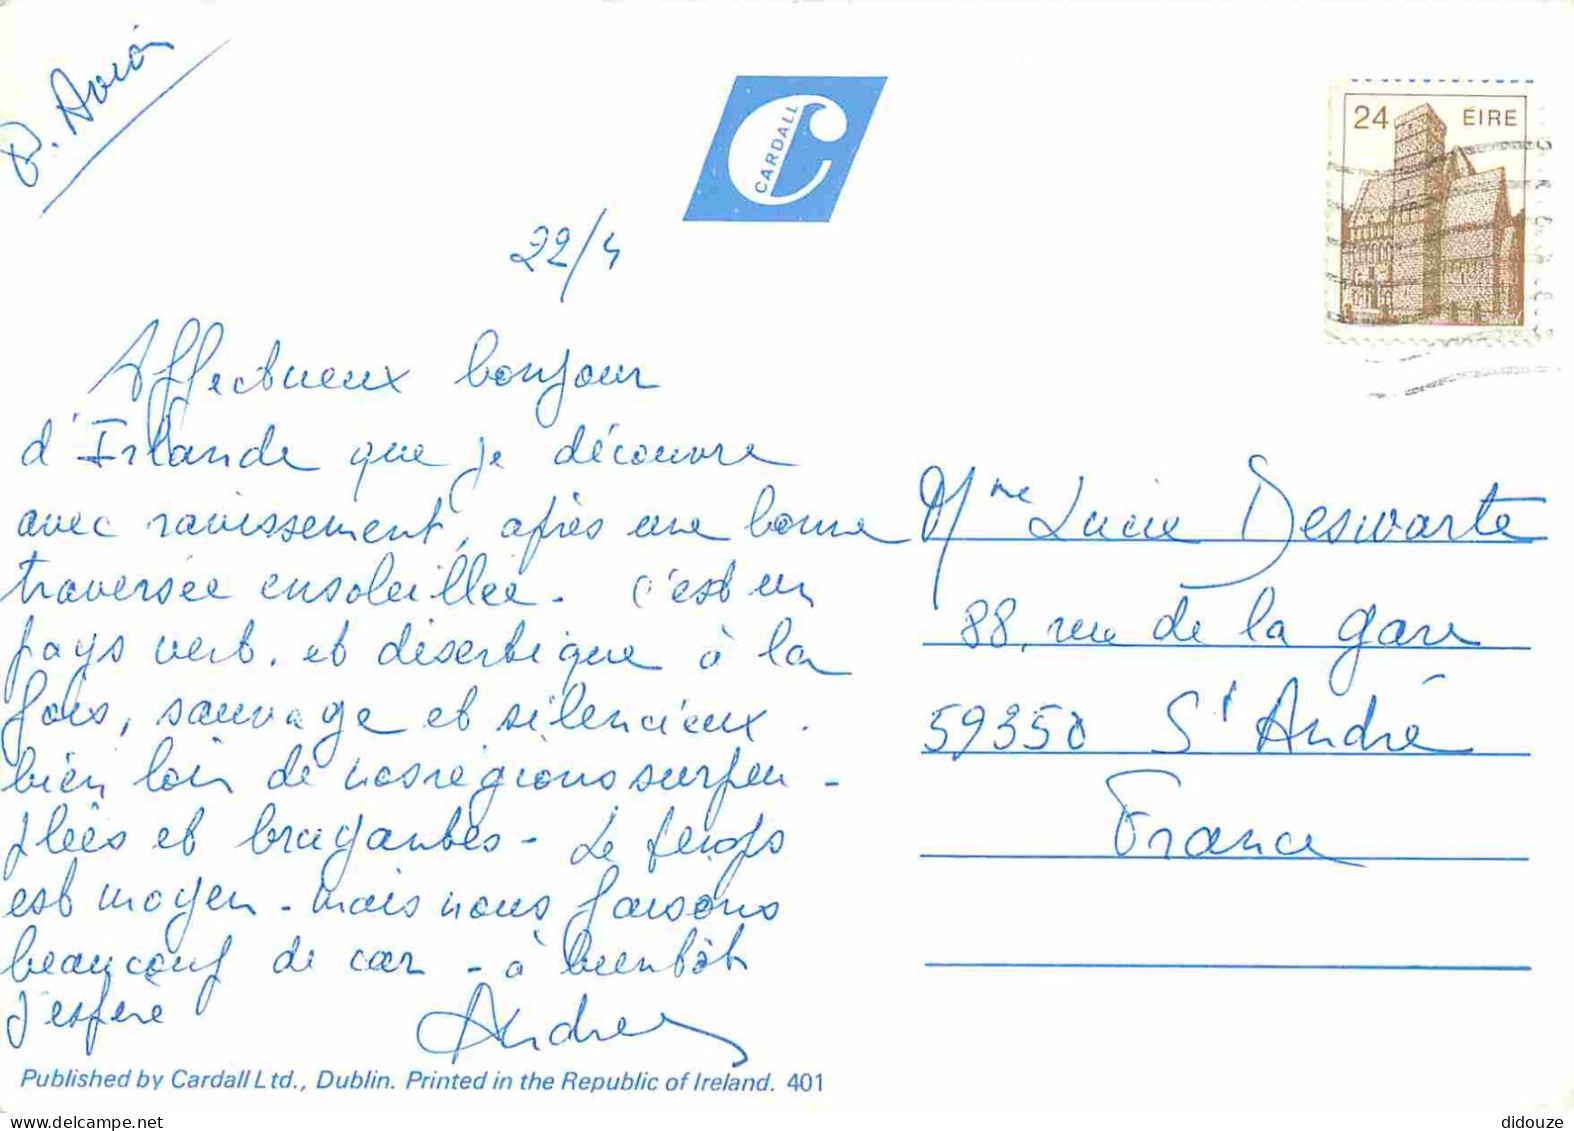 P. Avion
CARDALL
24 EIRE
22/4
Affectueux bonjour
d'Irlande que je découvre
avec ravissement, après une bonne
traversée ensoleillée. C'est un
pays vert. et désertique à la
fois, sauvage et silencieux.
bien loin de nos régions surpeu-
plées et bruyantes - Le temps
est moyen - mais nous faisons
beaucoup de car - à bientôt
j'espère
Andrée
Mme Lucie Deswarte
88, rue de la gare
59350 St André
France
Published by Cardall Ltd., Dublin. Printed in the Republic of Ireland. 401
didouze